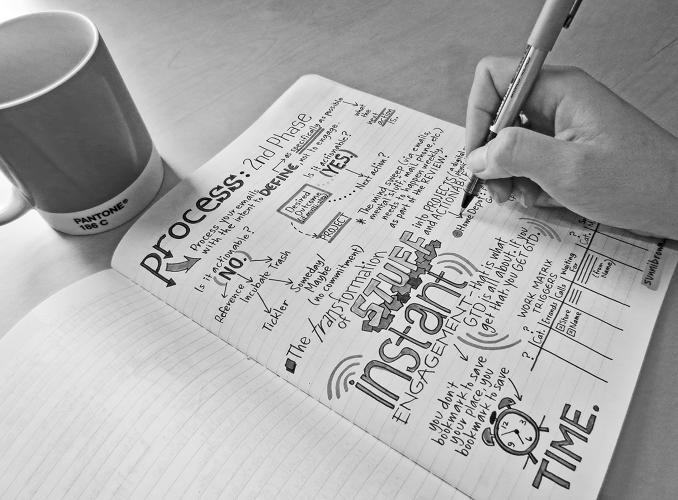 PANTONE®
186 C
Process: 2nd Phase
Process your emails
with the intent to DEFINE,
as specifically as possible
not to engage.
what
the
next
action
is...
Is it actionable?
(YES.)
Next action?
Desired
Outcome
PROJECT
Is it actionable?
(NO.)
Reference
Incubate
Trash
Tickler
Someday/
Maybe
(no commitment)
* The mind sweep (via emails,
mental stuff, mail, phone, etc.)
needs to happen weekly,
as part of the REVIEW.
The Transformation
of
STUFF
into PROJECTS
and ACTIONABLE
@Home Depot
instant
ENGAGEMENT - that is what
GTD is all about. If you
get that, you GET GTD.
you don't
bookmark to save
your place, you
bookmark to save
TIME.
? WORK MATRIX
TRIGGERS
? Cat. Errands Calls Waiting
For
@Store
@Name
(from
Name)
sunnibrown